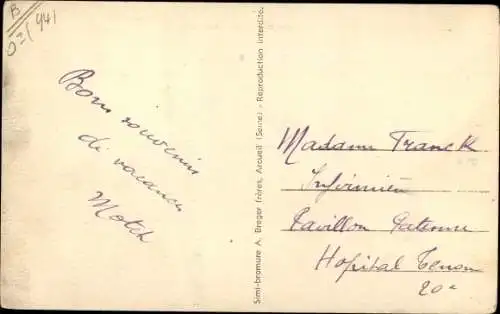 B
941
Bons souvenirs
de vacances
Motch
Simi-bromure A. Breger frères, Arcueil (Seine) - Reproduction interdite.
Madame Franck
Infirmière
Pavillon
Hopital Tenon
20e